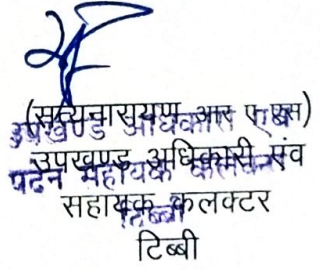 (सत्यनारायण आर ए एस)
उपखण्ड अधिकारी एवं
उपखण्ड अधिकारी एंव
पदेन सहायक कलक्टर
सहायक कलक्टर
टिब्बी
टिब्बी